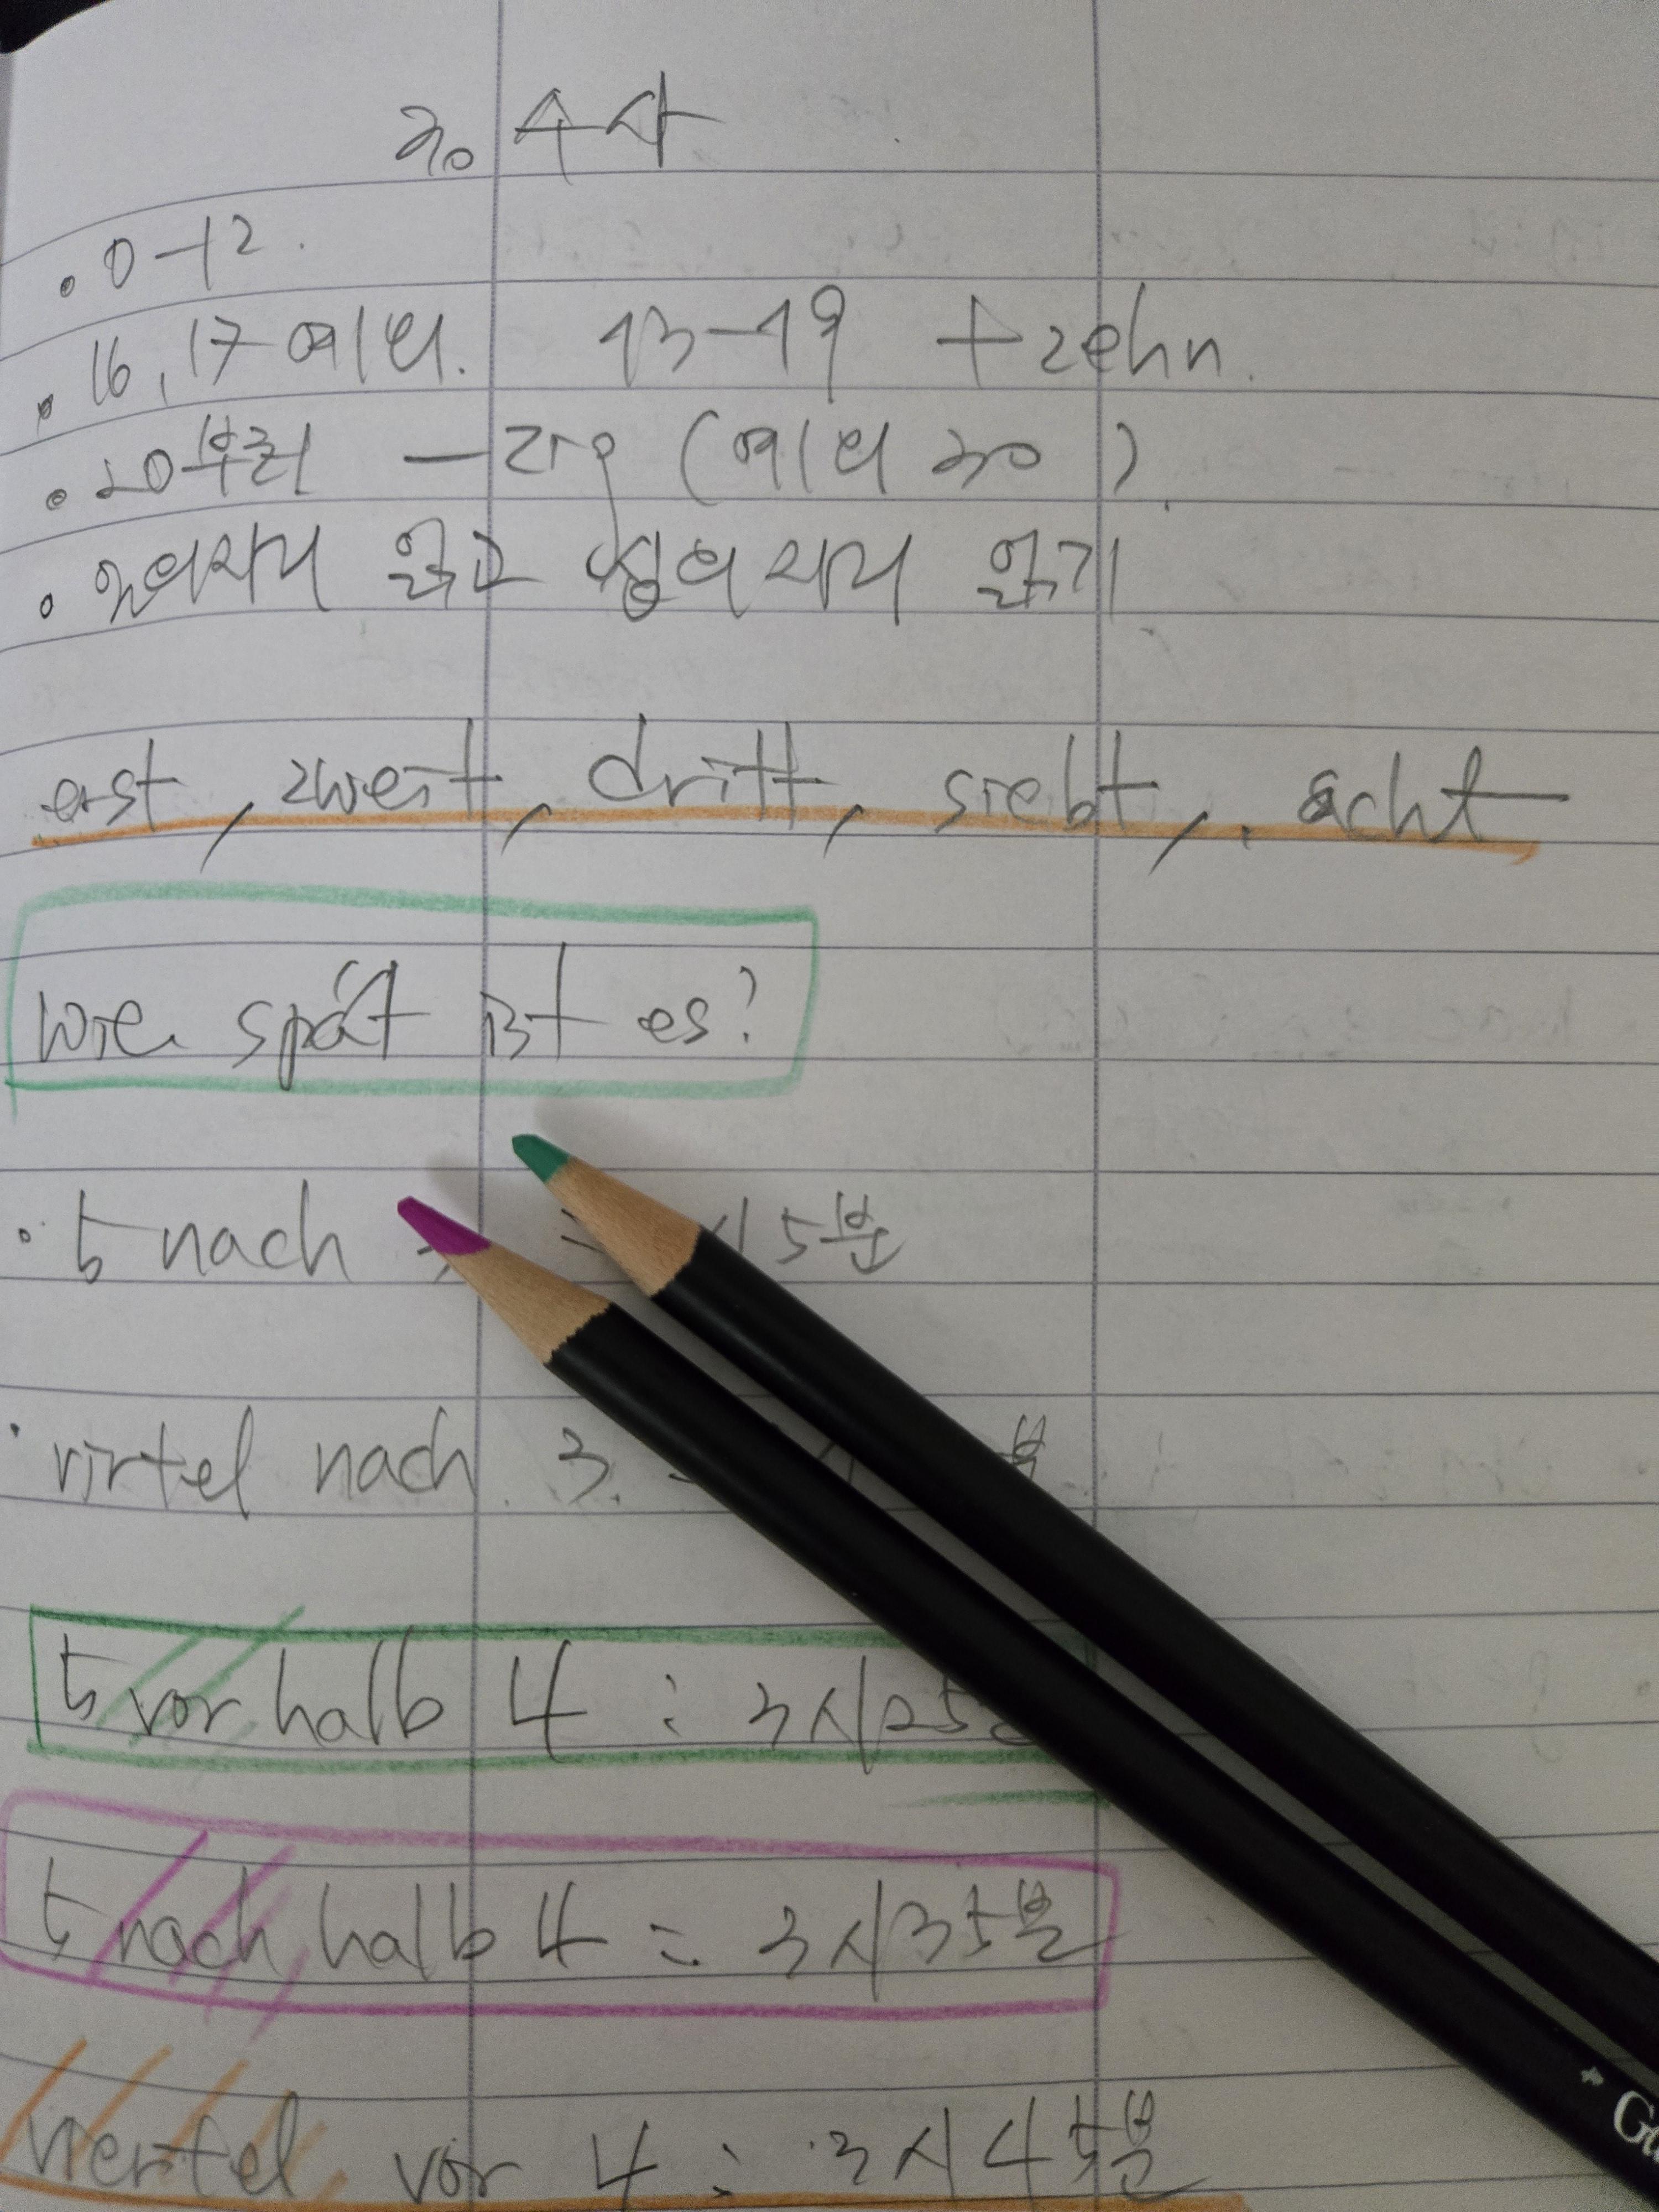 30. 수사
0-12.
16, 17 예외. 13-19 +zehn.
20부터 -zig (예외 30)
일의자리 읽고 십의자리 읽기
erst, zweit, dritt, siebt, acht
wie spät ist es?
5 nach = 5분
virtel nach 3. = 분
5 vor halb 4 : 3시25
5 nach halb 4 = 3시35분
viertel vor 4 : 3시45분